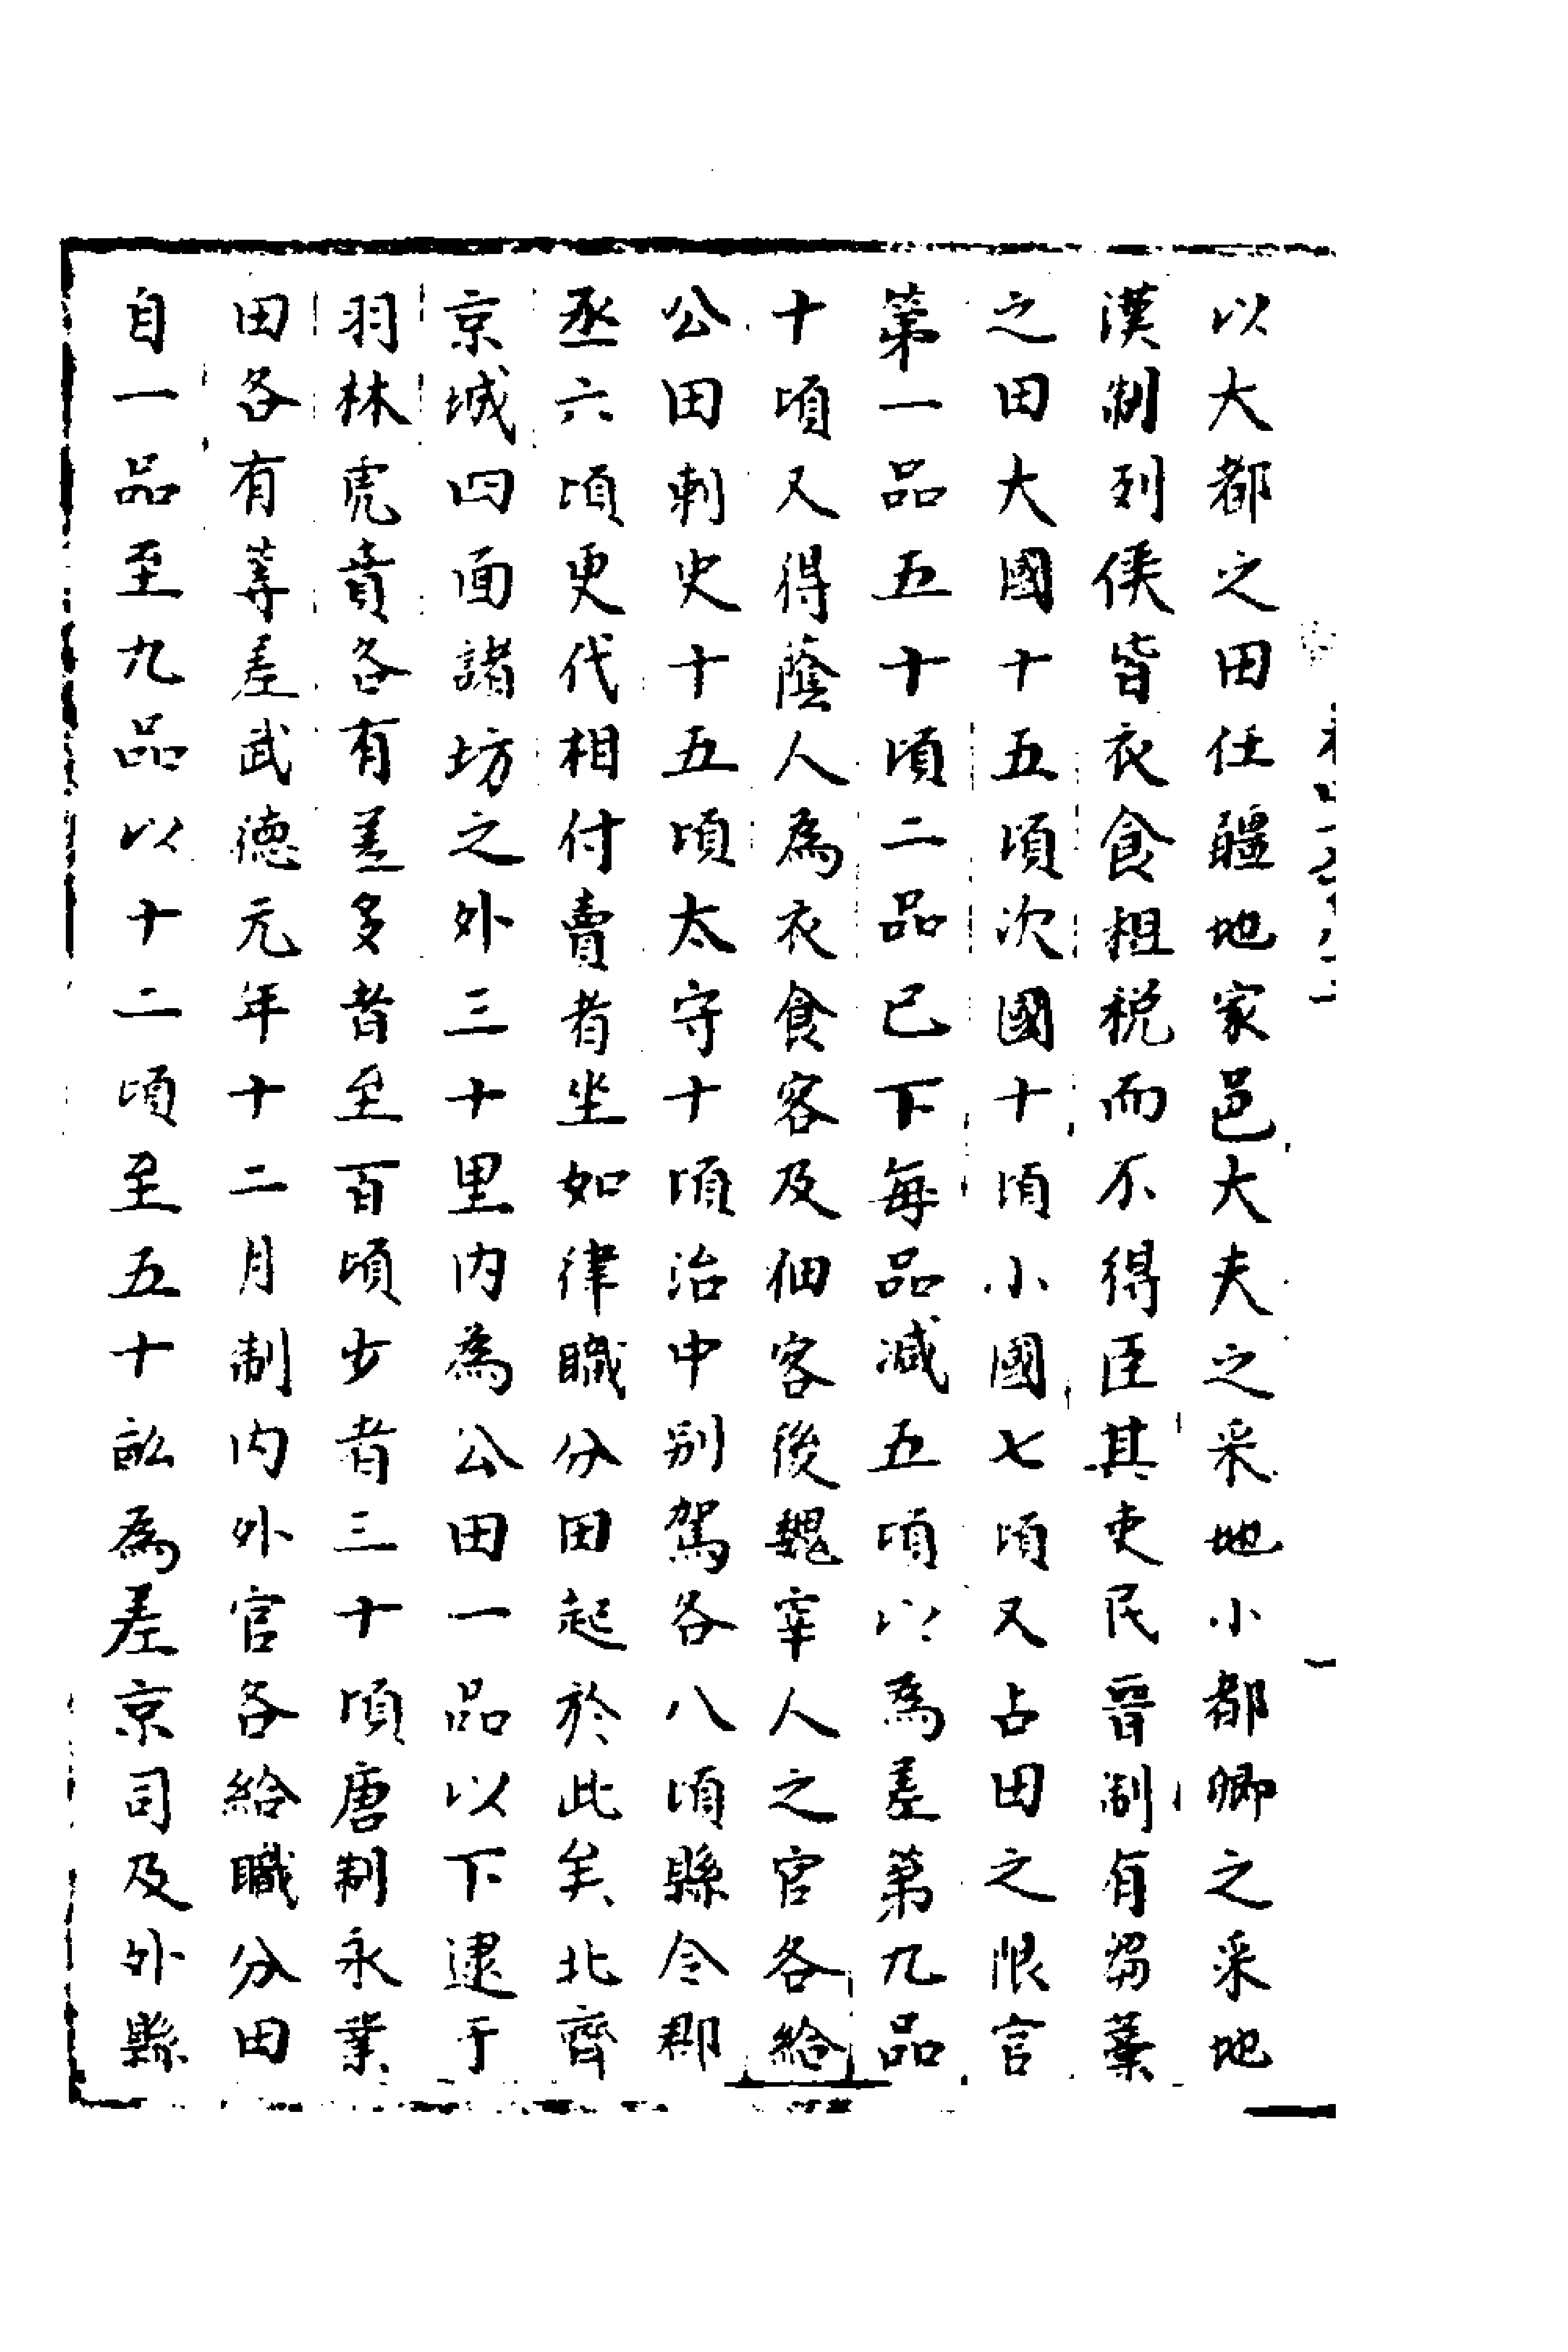 以大都之田任疆地家邑大夫之采地小都卿之采地
漢制列侯皆衣食租税而不得臣其吏民晋制有芻藁
之田大國十五頃次國十頃小國七頃又占田之限言
第一品五十頃二品已下每品减五頃以為差第九品
十頃又得蔭人為衣食客及佃客後魏宰人之官各給
公田刺史十五頃太守十頃治中别駕各八頃縣令郡
丞六頃更代相付賣者坐如律職分田起於此矣北齊
京城四面諸坊之外三十里内為公田一品以下逮于
羽林虎賁各有差多者至百頃少者三十頃唐制永業
田各有等差武德元年十二月制内外官各給職分田
自一品至九品以十二頃至五十畝為差京司及外縣